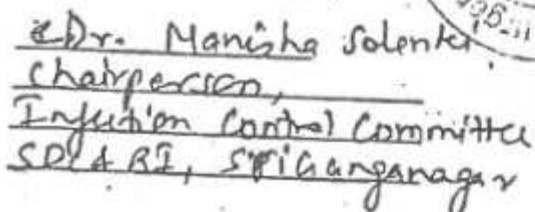 Dr. Manisha Solenki
Chairperson,
Infection Control Committee
SDC&RI, SriGanganagar